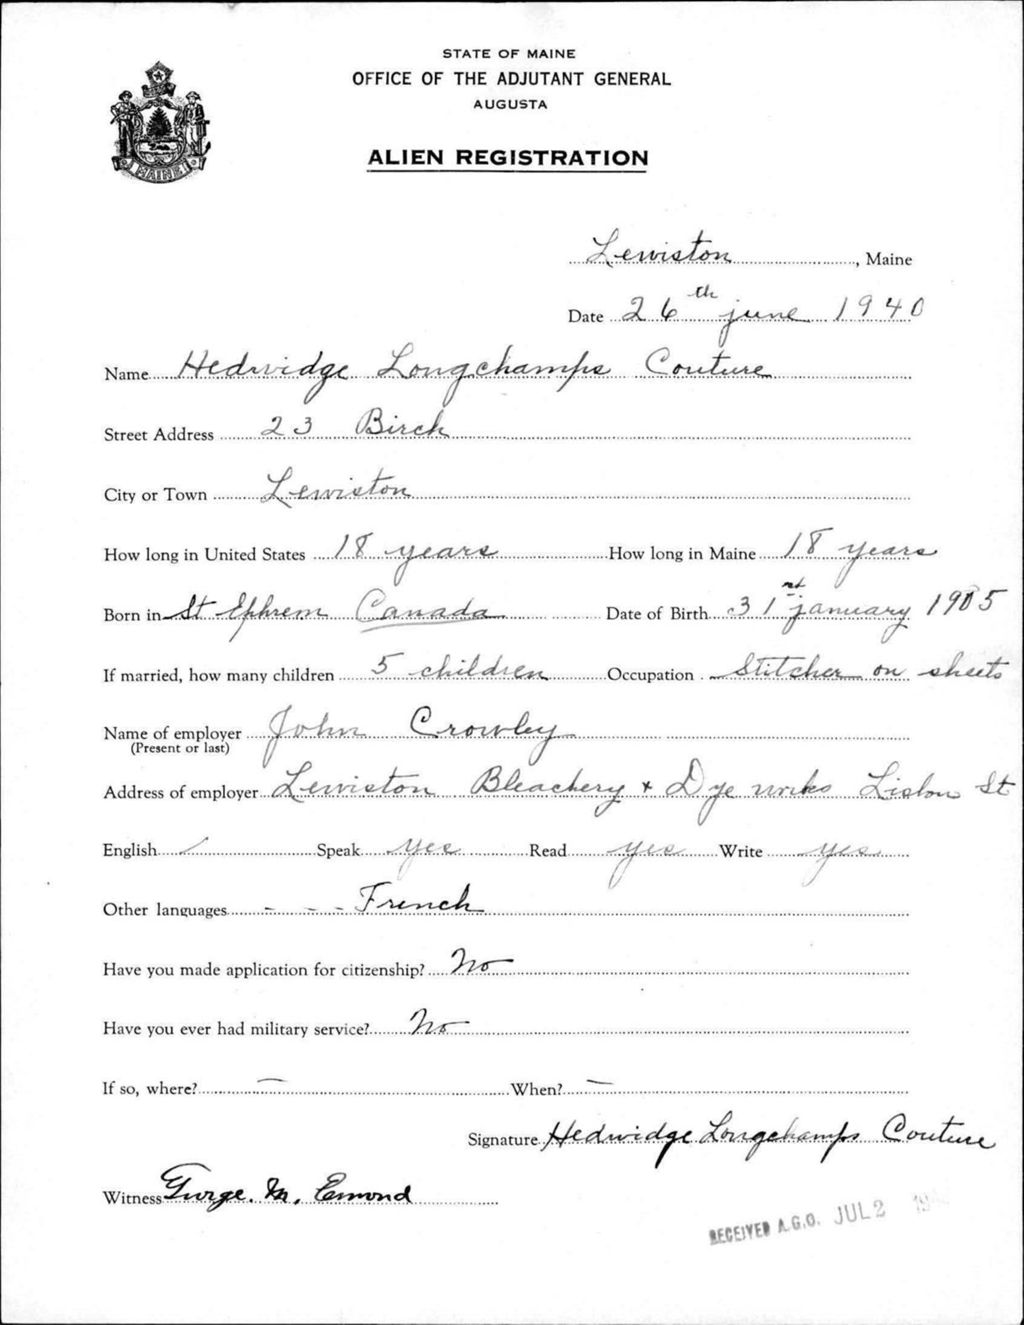 STATE OF MAINE
OFFICE OF THE ADJUTANT GENERAL
AUGUSTA
ALIEN REGISTRATION
MAINE
Lewiston, Maine
Date 26th june 1940
Name Hedwidge Longchamps Couture
Street Address 23 Birch
City or Town Lewiston
How long in United States 18 years How long in Maine 18 years
Born in St Ephrem Canada Date of Birth 31st january 1905
If married, how many children 5 children Occupation Stitcher on sheets
Name of employer John Crowley
(Present or last)
Address of employer Lewiston Bleachery + Dye works Lisbon St
English / Speak yes Read yes Write yes
Other languages - - - French
Have you made application for citizenship? No
Have you ever had military service? No
If so, where? — When? —
Signature Hedwidge Longchamps Couture
Witness George. M. Emond
RECEIVED A.G.O. JUL 2